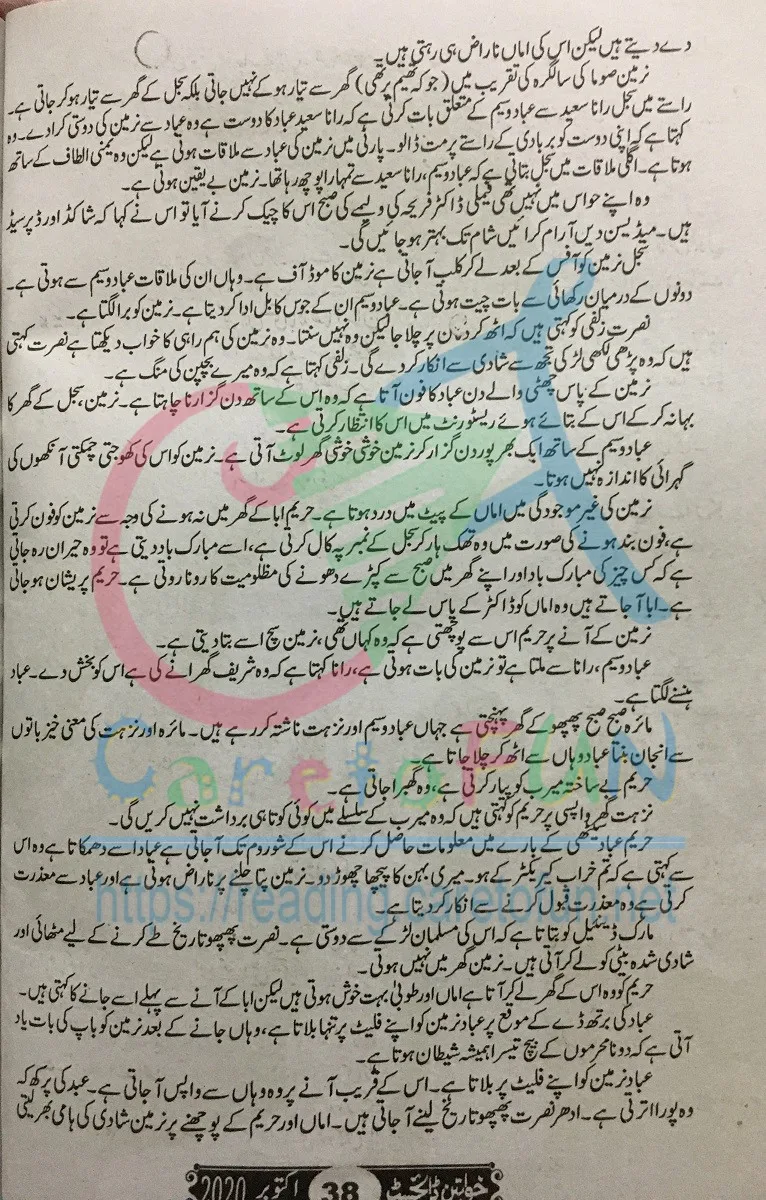 دے دیتے ہیں لیکن اس کی اماں ناراض ہی رہتی ہیں۔
نرمین صوما کی سالگرہ کی تقریب میں (جو کہ تھیم پر تھی) گھر سے تیار ہو کے نہیں جاتی بلکہ سجل کے گھر سے تیار ہو کر جاتی ہے۔
راستے میں سجل رانا سعید سے عباد وسیم کے متعلق بات کرتی ہے کہ رانا سعید عباد کا دوست ہے وہ عباد سے نرمین کی دوستی کرا دے۔ وہ
کہتا ہے کہ اپنی دوست کو بربادی کے راستے پر مت ڈالو۔ پارٹی میں نرمین کی عباد سے ملاقات ہوتی ہے لیکن وہ یمنی الطاف کے ساتھ
ہوتا ہے۔ اگلی ملاقات میں سجل بتاتی ہے کہ عباد وسیم، رانا سعید سے تمہارا پوچھ رہا تھا۔ نرمین بے یقین ہوتی ہے۔
وہ اپنے حواس میں نہیں تھی فیملی ڈاکٹر فریحہ کی ولیمے کی صبح اس کا چیک کرنے آیا تو اس نے کہا کہ شاکڈ اور ڈپرسیڈ
ہیں۔ میڈیسن دیں آرام کرائیں شام تک بہتر ہو جائیں گی۔
سجل نرمین کو آفس کے بعد لے کر کلب آ جاتی ہے نرمین کا موڈ آف ہے۔ وہاں ان کی ملاقات عباد وسیم سے ہوتی ہے۔
دونوں کے درمیان رکھائی سے بات چیت ہوتی ہے۔ عباد وسیم ان کے جوس کا بل ادا کر دیتا ہے۔ نرمین کو برا لگتا ہے۔
نصرت زلفی کو کہتی ہیں کہ اٹھ کر دکان پر چلا جا لیکن وہ نہیں سنتا۔ وہ نرمین کی ہم راہی کا خواب دیکھتا ہے نصرت کہتی
ہیں کہ وہ پڑھی لکھی لڑکی تجھ سے شادی سے انکار کر دے گی۔ زلفی کہتا ہے کہ وہ میرے بچپن کی منگ ہے۔
نرمین کے پاس چھٹی والے دن عباد کا فون آتا ہے کہ وہ اس کے ساتھ دن گزارنا چاہتا ہے۔ نرمین، سجل کے گھر کا
بہانہ کر کے اس کے بتائے ہوئے ریسٹورنٹ میں اس کا انتظار کرتی ہے۔
عباد وسیم کے ساتھ ایک بھرپور دن گزار کر نرمین خوشی خوشی گھر لوٹ آتی ہے۔ نرمین کو اس کی کھوجتی چمکتی آنکھوں کی
گہرائی کا اندازہ نہیں ہوتا۔
نرمین کی غیر موجودگی میں اماں کے پیٹ میں درد ہوتا ہے۔ حریم ابا کے گھر میں نہ ہونے کی وجہ سے نرمین کو فون کرتی
ہے، فون بند ہونے کی صورت میں وہ تھک ہار کر سجل کے نمبر پہ کال کرتی ہے، اسے مبارک باد دیتی ہے تو وہ حیران رہ جاتی
ہے کہ کس چیز کی مبارک باد اور اپنے گھر میں صبح سے کپڑے دھونے کی مظلومیت کا رونا روتی ہے۔ حریم پریشان ہو جاتی
ہے۔ ابا آ جاتے ہیں وہ اماں کو ڈاکٹر کے پاس لے جاتے ہیں۔
نرمین کے آنے پر حریم اس سے پوچھتی ہے کہ وہ کہاں تھی، نرمین سچ اسے بتا دیتی ہے۔
عباد وسیم، رانا سے ملتا ہے تو نرمین کی بات ہوتی ہے، رانا کہتا ہے کہ وہ شریف گھرانے کی ہے اس کو بخش دے۔ عباد
ہنسنے لگتا ہے۔
مائرہ صبح صبح پھپھو کے گھر پہنچتی ہے جہاں عباد وسیم اور نزہت ناشتہ کر رہے ہیں۔ مائرہ اور نزہت کی معنی خیز باتوں
سے انجان بنتا عباد وہاں سے اٹھ کر چلا جاتا ہے۔
حریم بے ساختہ میرب کو پیار کرتی ہے، وہ گھبرا جاتی ہے۔
نزہت گھر واپسی پر حریم کو کہتی ہیں کہ وہ میرب کے سلسلے میں کوئی کوتاہی برداشت نہیں کریں گی۔
حریم عباد سیٹھی کے بارے میں معلومات حاصل کرنے اس کے شوروم تک آ جاتی ہے عباد اسے دھمکاتا ہے وہ اس
سے کہتی ہے کہ تم خراب کیریکٹر کے ہو۔ میری بہن کا پیچھا چھوڑ دو۔ نرمین پتا چلنے پر ناراض ہوتی ہے اور عباد سے معذرت
کرتی ہے وہ معذرت قبول کرنے سے انکار کر دیتا ہے۔
مارک ڈینئیل کو بتاتا ہے کہ اس کی مسلمان لڑکے سے دوستی ہے۔ نصرت پھپھو تاریخ طے کرنے کے لیے مٹھائی اور
شادی شدہ بیٹی کو لے کر آتی ہیں۔ نرمین گھر میں نہیں ہوتی۔
حریم کو وہ اس کے گھر لے کر آتا ہے اماں اور طوبیٰ بہت خوش ہوتی ہیں لیکن ابا کے آنے سے پہلے اسے جانے کا کہتی ہیں۔
عباد کی برتھ ڈے کے موقع پر عباد نرمین کو اپنے فلیٹ پر تنہا بلاتا ہے، وہاں جانے کے بعد نرمین کو باپ کی بات یاد
آتی ہے کہ دو نامحرموں کے بیچ تیسرا ہمیشہ شیطان ہوتا ہے۔
عباد نرمین کو اپنے فلیٹ پر بلاتا ہے۔ اس کے قریب آنے پر وہ وہاں سے واپس آ جاتی ہے۔ عبد کی پرکھ کہ
وہ پورا اترتی ہے۔ ادھر نصرت پھپھو تاریخ لینے آ جاتی ہیں۔ اماں اور حریم کے پوچھنے پر نرمین شادی کی ہامی بھر لیتی
خواتین ڈائجسٹ 38 اکتوبر 2020
CaretoFUN
https://reading.caretofun.net